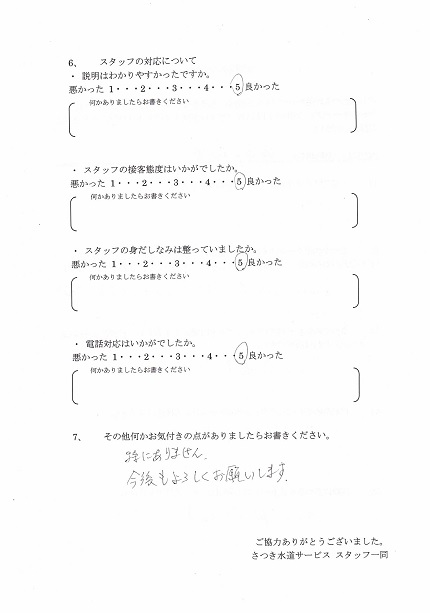 6、 スタッフの対応について
・ 説明はわかりやすかったですか。
悪かった 1・・・2・・・3・・・4・・・5 良かった
何かありましたらお書きください
・ スタッフの接客態度はいかがでしたか。
悪かった 1・・・2・・・3・・・4・・・5 良かった
何かありましたらお書きください
・ スタッフの身だしなみは整っていましたか。
悪かった 1・・・2・・・3・・・4・・・5 良かった
何かありましたらお書きください
・ 電話対応はいかがでしたか。
悪かった 1・・・2・・・3・・・4・・・5 良かった
何かありましたらお書きください
7、 その他何かお気付きの点がありましたらお書きください。
特にありません。
今後もよろしくお願いします。
ご協力ありがとうございました。
さつき水道サービス スタッフ一同